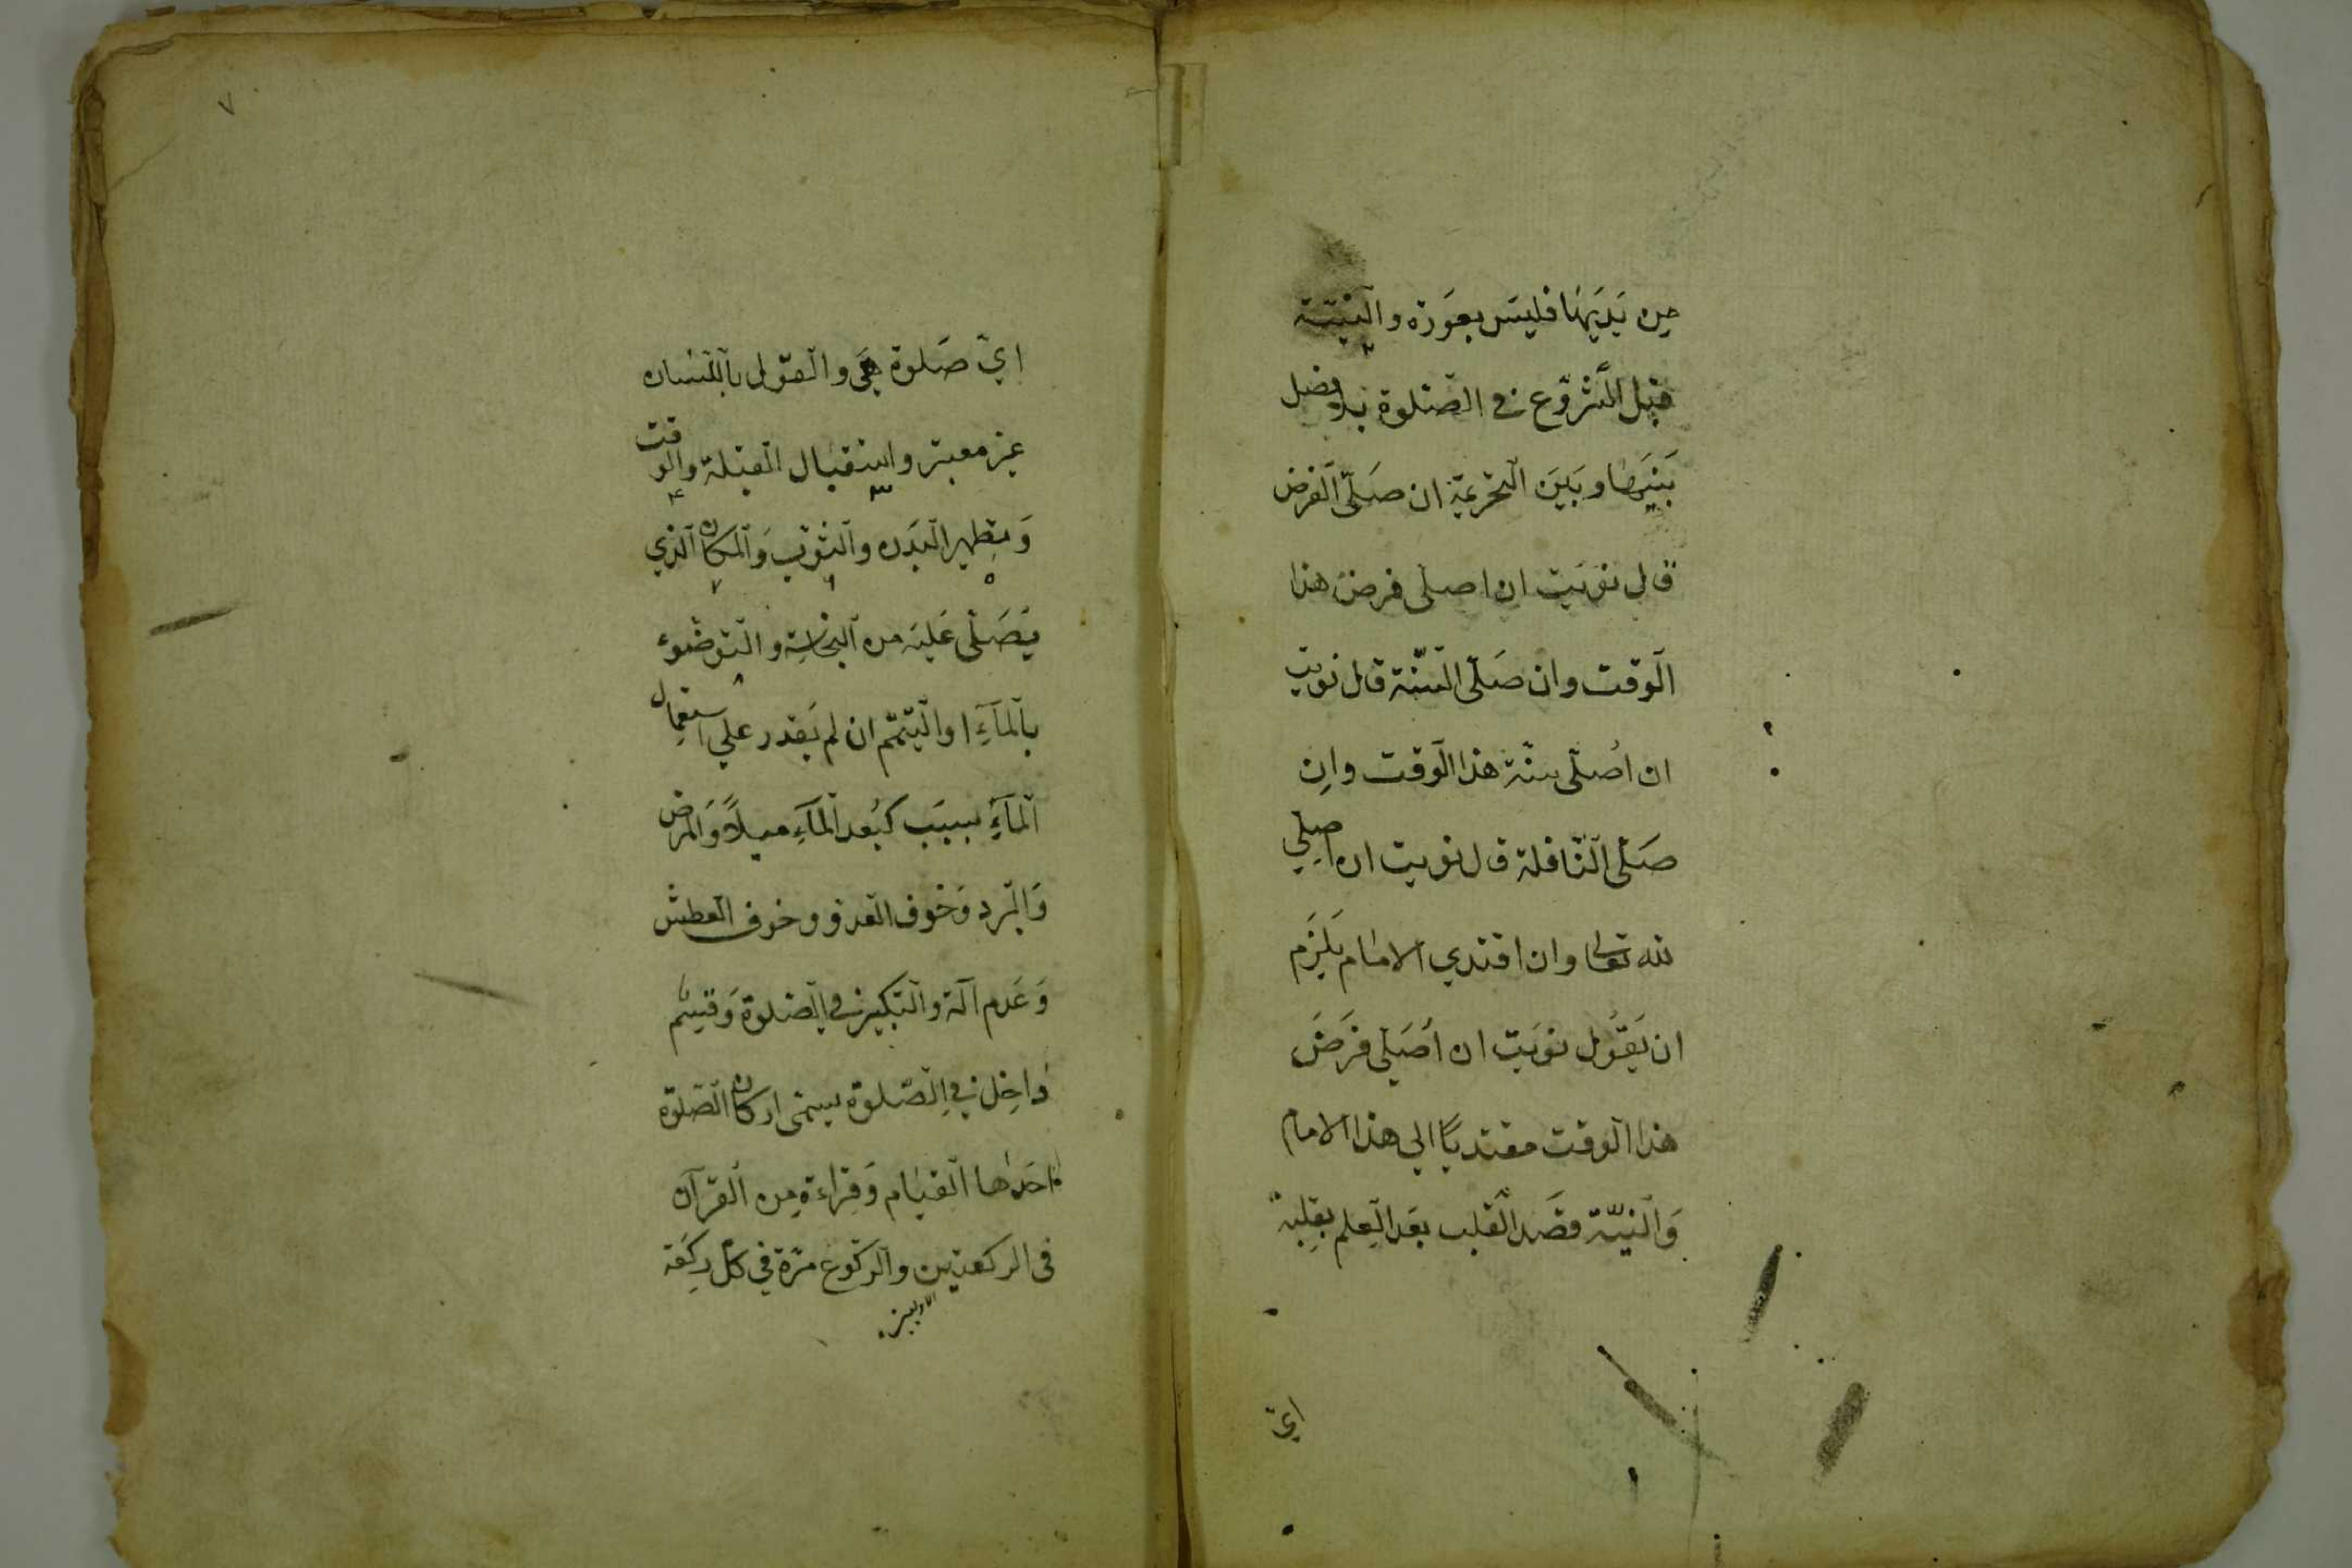 من يديها فليس بعورة والنيتة
قبل الشروع في الصلوة بلا فصل
بينها وبين التحريمة ان صلى الفرض
قال نويت ان اصلي فرض هذا
الوقت وان صلى السنة قال نويت
ان اصلى سنة هذا الوقت وان
صلى النافلة قال نويت ان اصلي
لله تعالى وان اقتدي الامام يلزم
ان يقول نويت ان اصلي فرض
هذا الوقت مقتديا الي هذا الامام
والنية قصد القلب بعد العلم بقلبه
اي
٧
اي صلوة هي والقول باللسان
غير معتبر واستقبال القبلة والوقت
٣ ٤
وتطهير البدن والثوب والمكان الذي
٥ ٦ ٧
يصلى عليه من النجاسة والتوضوء
٨
بالماء او التيمم ان لم يقدر علي استعمال
الماء بسبب كبعد الماء ميلا والمرض
والبرد وخوف العدو وخوف العطش
وعدم آلة والتكبير في الصلوة وقسم
داخل في الصلوة يسمى اركان الصلوة
احدها القيام وقراءة من القرآن
فى الركعتين والركوع مرة في كل ركعة
الاوليين